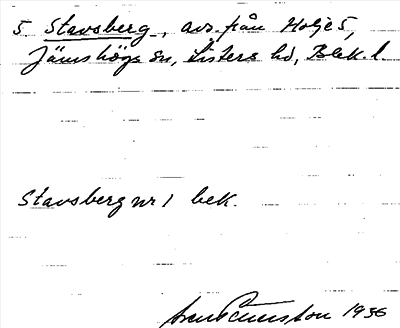 5 Stavsberg, avs. från Holje 5,
Jämshögs sn, Listers hd, Blek. l.
Stavsberg nr 1 bek.
1956